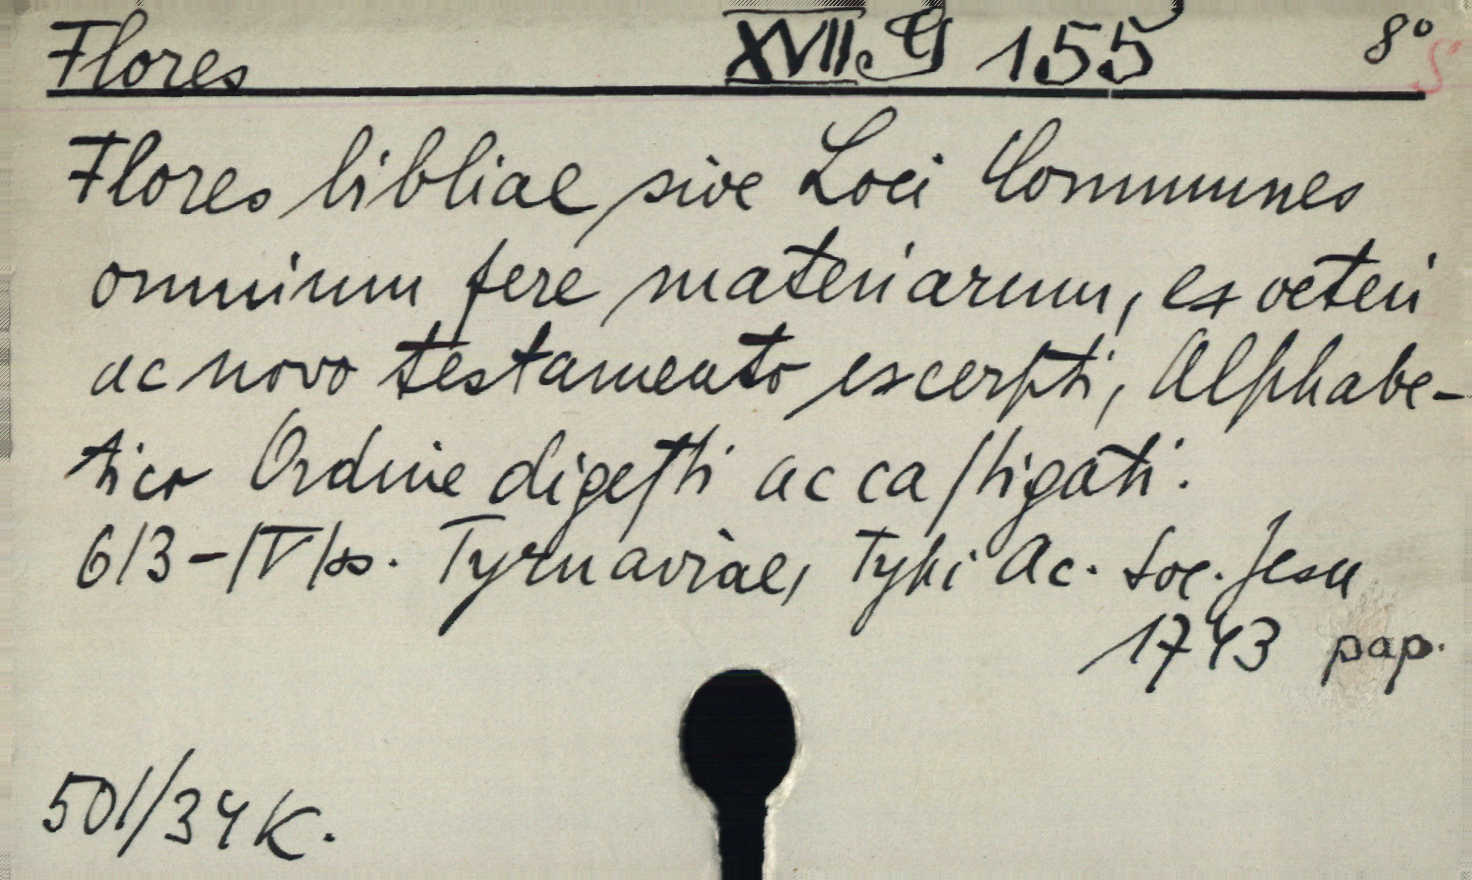 Flores XVII. G 155 8° S
Flores bibliae sive Loci Communes
omnium fere materiarum, ex veteri
ac novo testamento excerpti, Alphabe-
tico Ordine digesti ac castigati.
613-IV ss. Tyrnaviae, Typi Ac. Soc. Jesu
1743 pap.
501/34 K.